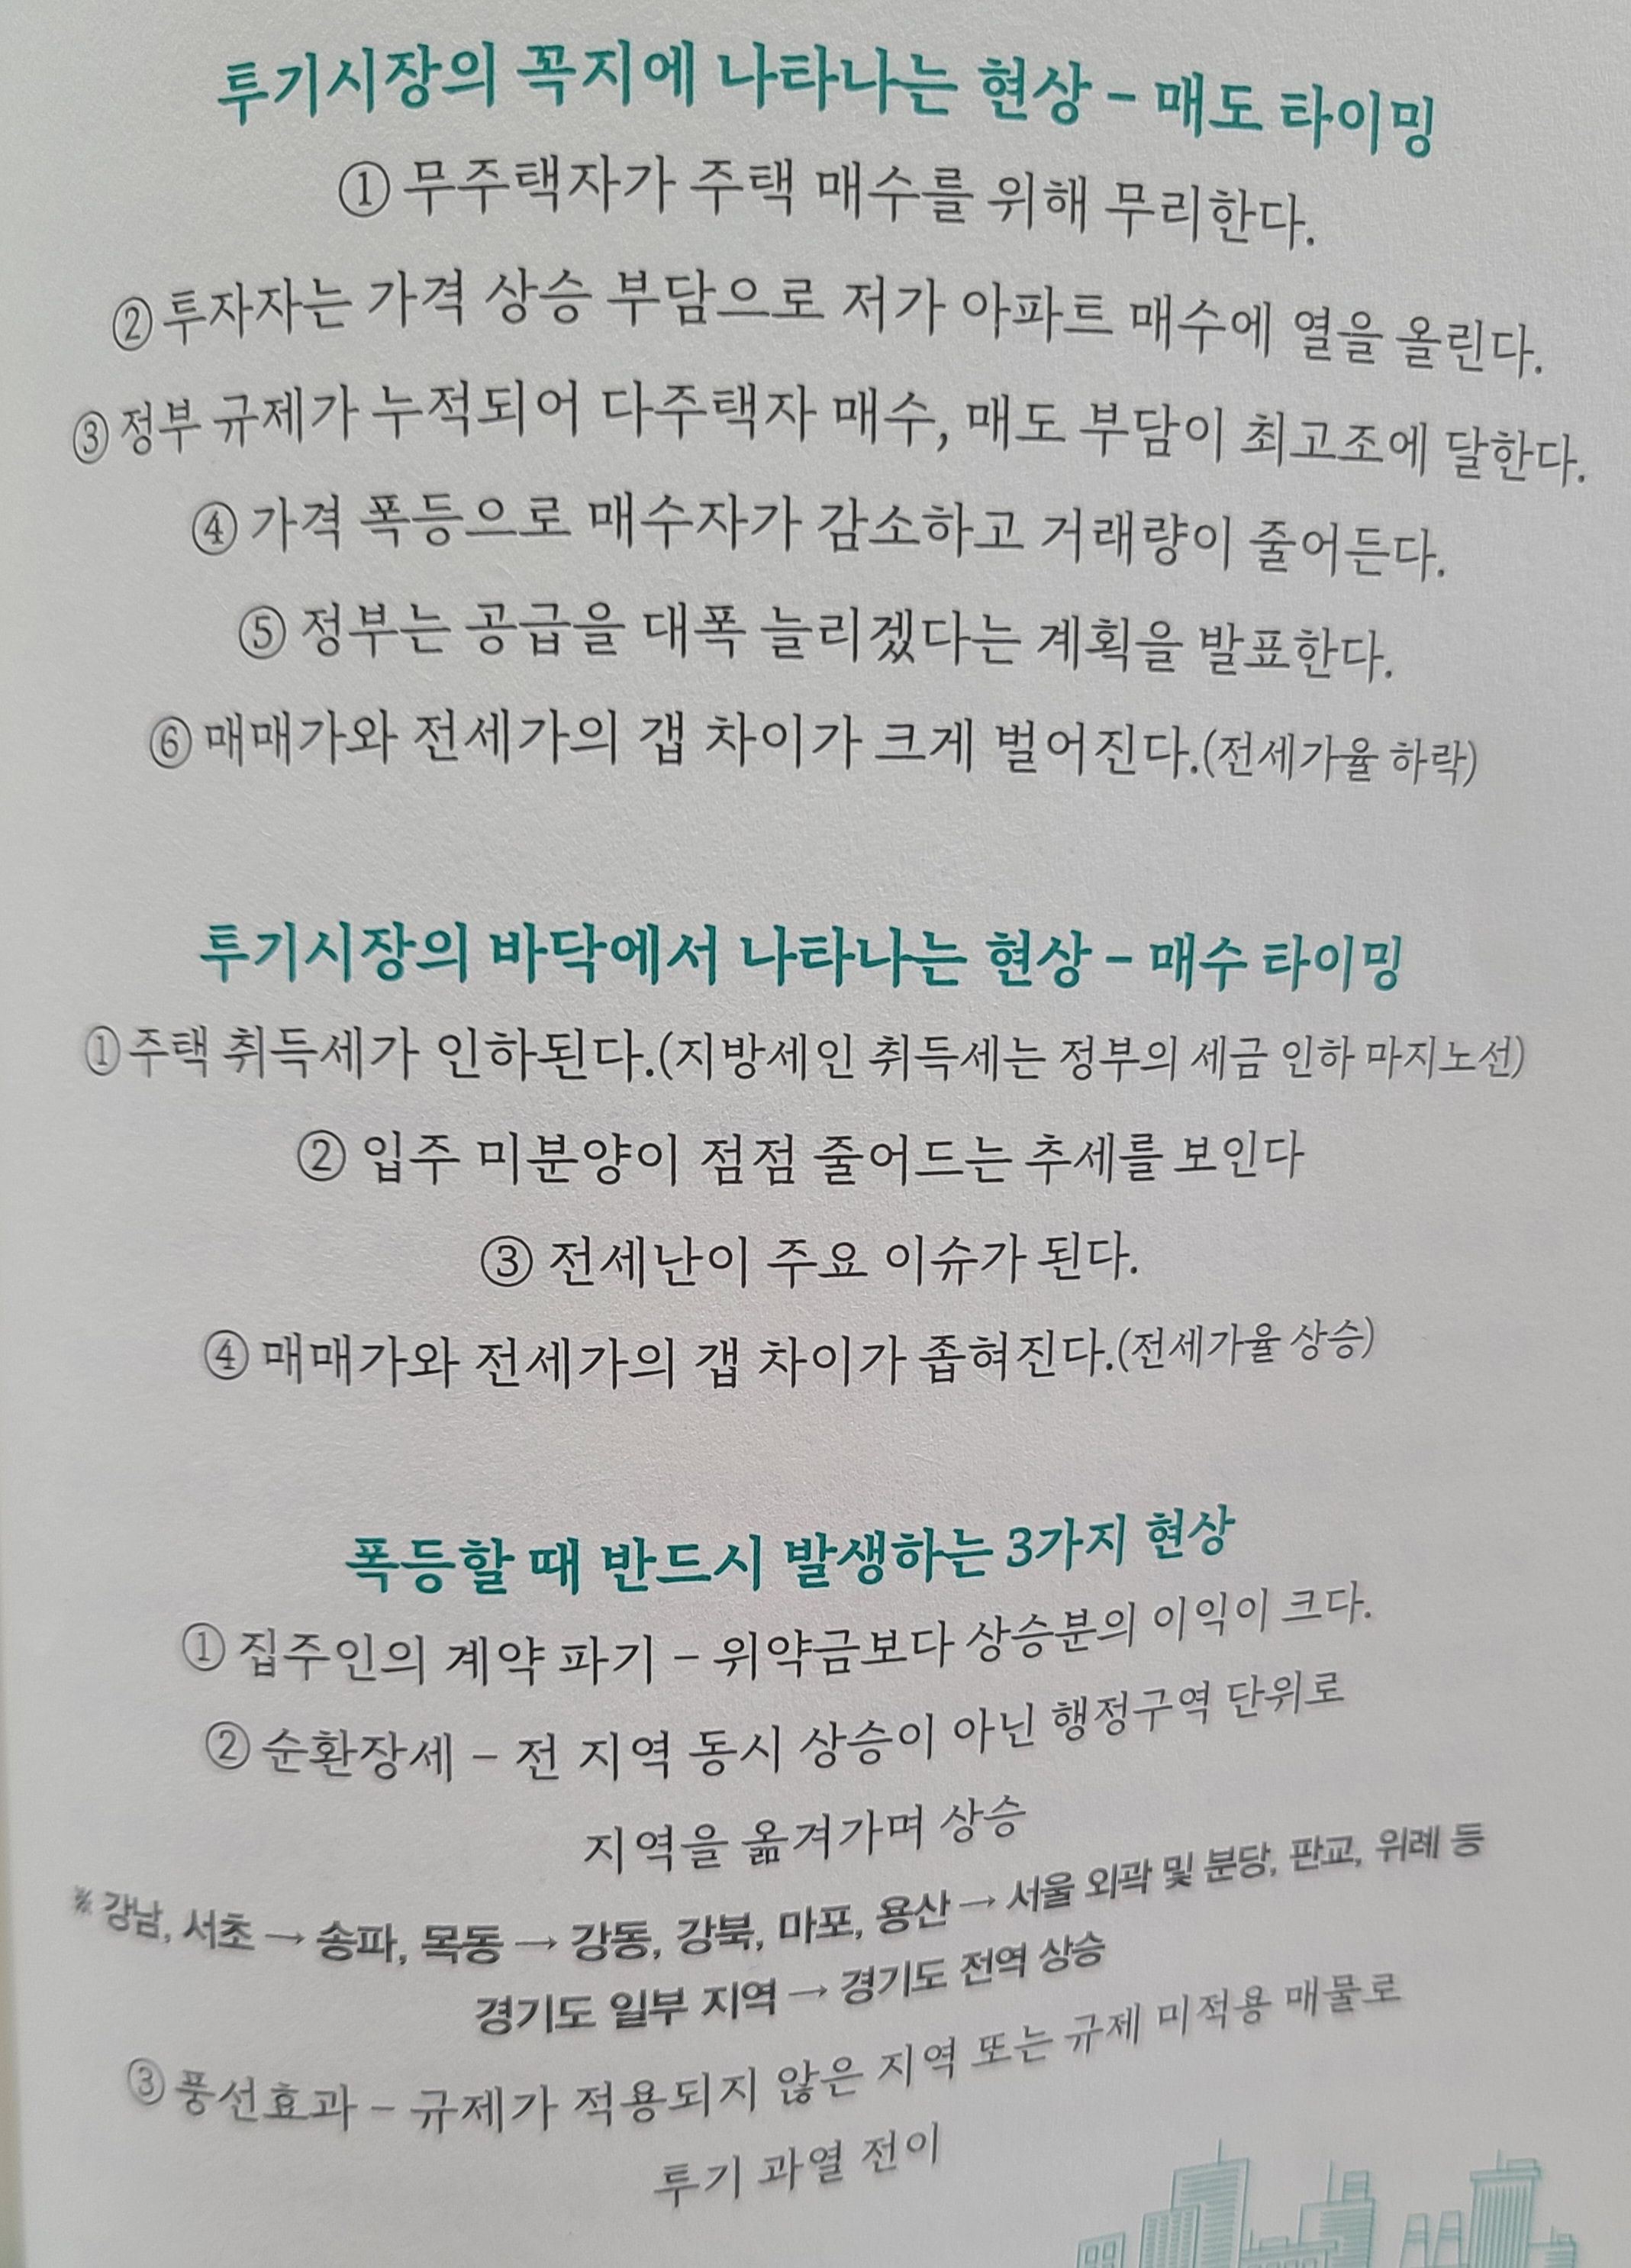 투기시장의 꼭지에 나타나는 현상 – 매도 타이밍
① 무주택자가 주택 매수를 위해 무리한다.
② 투자자는 가격 상승 부담으로 저가 아파트 매수에 열을 올린다.
③ 정부 규제가 누적되어 다주택자 매수, 매도 부담이 최고조에 달한다.
④ 가격 폭등으로 매수자가 감소하고 거래량이 줄어든다.
⑤ 정부는 공급을 대폭 늘리겠다는 계획을 발표한다.
⑥ 매매가와 전세가의 갭 차이가 크게 벌어진다.(전세가율 하락)
투기시장의 바닥에서 나타나는 현상 – 매수 타이밍
① 주택 취득세가 인하된다.(지방세인 취득세는 정부의 세금 인하 마지노선)
② 입주 미분양이 점점 줄어드는 추세를 보인다
③ 전세난이 주요 이슈가 된다.
④ 매매가와 전세가의 갭 차이가 좁혀진다.(전세가율 상승)
폭등할 때 반드시 발생하는 3가지 현상
① 집주인의 계약 파기 – 위약금보다 상승분의 이익이 크다.
② 순환장세 – 전 지역 동시 상승이 아닌 행정구역 단위로
지역을 옮겨가며 상승
※ 강남, 서초 → 송파, 목동 → 강동, 강북, 마포, 용산 → 서울 외곽 및 분당, 판교, 위례 등
경기도 일부 지역 → 경기도 전역 상승
③ 풍선효과 – 규제가 적용되지 않은 지역 또는 규제 미적용 매물로
투기 과열 전이